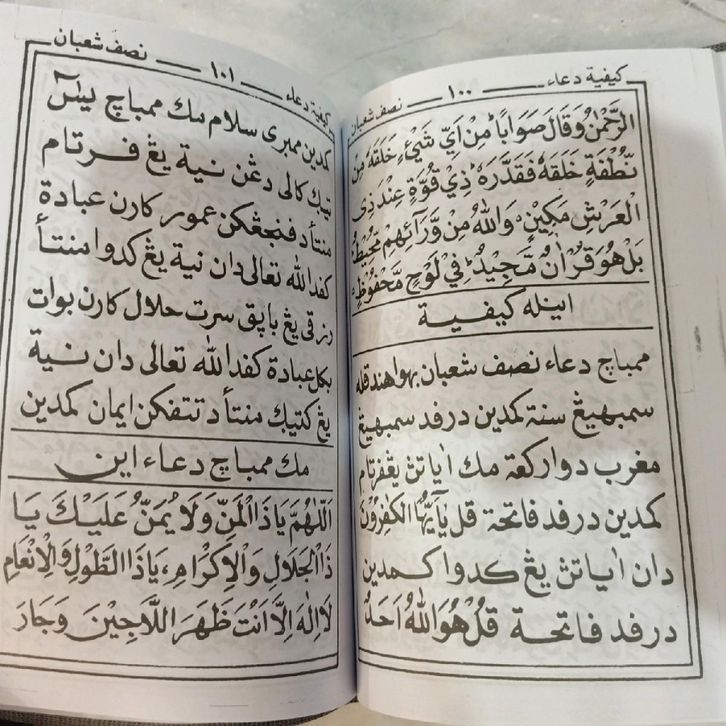 كيفية دعاء ١٠٠ نصف شعبان
الرَّحْمٰنُ وَقَالَ صَوَابًا مِنْ اَيِّ شَيْءٍ خَلَقَهُ مِنْ
نُّطْفَةٍ خَلَقَهُ فَقَدَّرَهُ ذِيْ قُوَّةٍ عِنْدَ ذِى
الْعَرْشِ مَكِيْنٍ وَاللّٰهُ مِنْ وَّرَآئِهِمْ مُحِيْطٌ
بَلْ هُوَ قُرْاٰنٌ مَّجِيْدٌ فِيْ لَوْحٍ مَّحْفُوْظٍ
اينله كيفية
ممباچ دعاء نصف شعبان بهوا هندقله
سمبهيڠ سنة كمدين درفد سمبهيڠ
مغرب دوا ركعة مك اياتڽ يڠ فرتام
كمدين درفد فاتحة قل يٰٓاَيُّهَا الْكٰفِرُوْنَ
دان اياتڽ يڠ كدوا كمدين
درفد فاتحة قُلْ هُوَ اللّٰهُ اَحَدٌ
كيفية دعاء ١٠١ نصف شعبان
كمدين ممبرى سلام مك ممباچ يٰسٓ
تيݢ كالى دڠن نية يڠ فرتام
منتأ د فنجڠكن عمور كارن عبادة
كفد الله تعالى دان نية يڠ كدوا منتأ
رزقى يڠ باپق سرت حلال كارن بوات
بكل عبادة كفد الله تعالى دان نية
يڠ كتيݢ منتأ د تتفكن ايمان كمدين
مك ممباچ دعاء اين
اَللّٰهُمَّ يَا ذَا الْمَنِّ وَلَا يُمَنُّ عَلَيْكَ يَا
ذَا الْجَلَالِ وَالْاِكْرَامِ، يَا ذَا الطَّوْلِ وَالْاِنْعَامِ
لَا اِلٰهَ اِلَّا اَنْتَ ظَهَرَ اللَّاجِيْنَ وَجَارَ